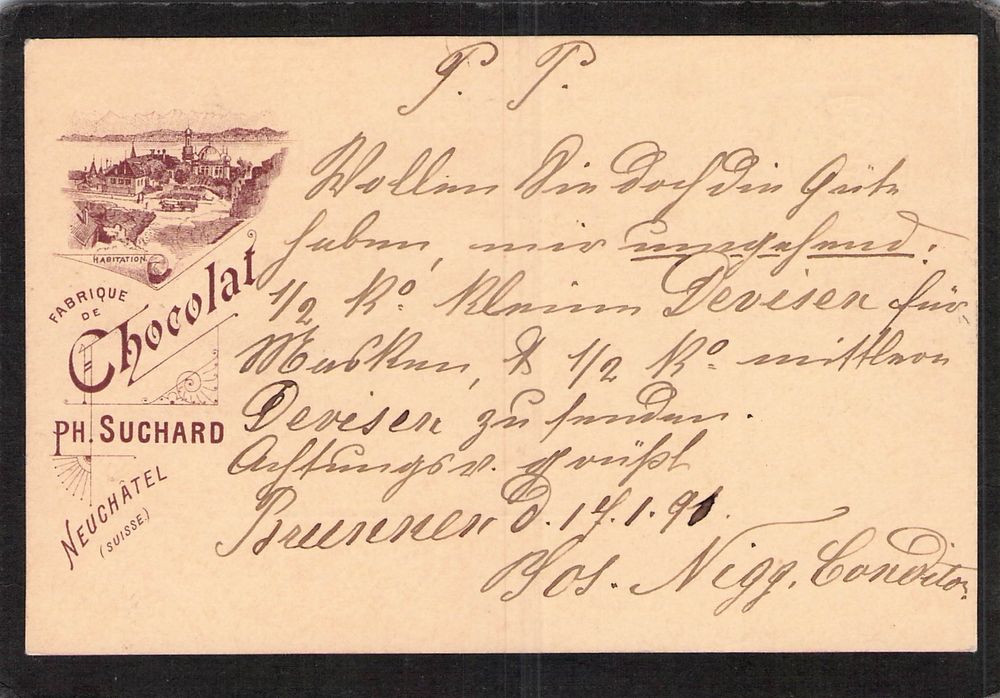 P. P.
HABITATION
FABRIQUE
DE
Chocolat
PH. SUCHARD
NEUCHÂTEL
(SUISSE)
Wollen Sie doch die Güte
haben, mir umgehend.
1/2 Ko. kleinen Devisen für
Masken, & 1/2 Ko. mittlere
Devisen zu senden.
Achtungsv. grüßt
Brunnen d. 17.1.91.
Jos. Nigg. Conditor.